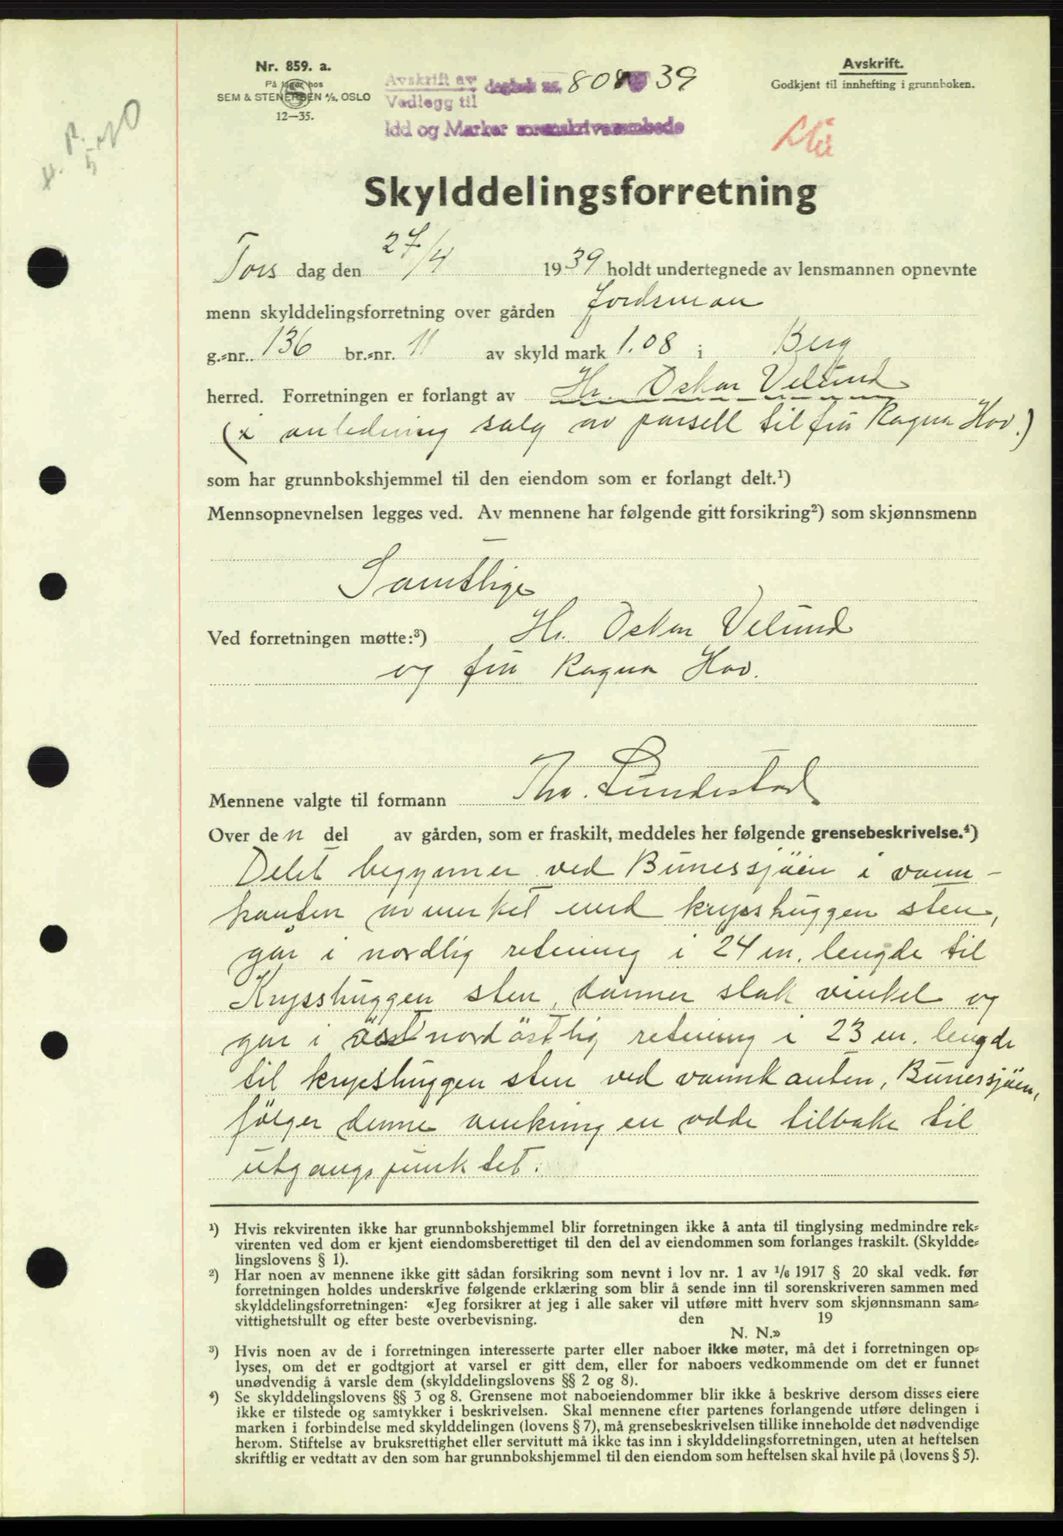 Nr. 859. a.
På lager hos
SEM & STENERSEN A/S, OSLO
12—35.
Avskrift av
Vedlegg til dagbok nr. 808 39
Idd og Marker sorenskriverembede
Avskrift.
Godkjent til innhefting i grunnboken.
Skylddelingsforretning
Tors dag den 27/4 1939 holdt undertegnede av lensmannen opnevnte
menn skylddelingsforretning over gården Jordsman
g.=nr. 136 br.=nr. 11 av skyld mark 1.08 i Berg
herred. Forretningen er forlangt av Hr. Oskar Velund
(i anledning salg av parsell til fru Ragna Hov.)
som har grunnbokshjemmel til den eiendom som er forlangt delt.¹)
Mennsopnevnelsen legges ved. Av mennene har følgende gitt forsikring²) som skjønnsmenn
Samtlige
Ved forretningen møtte:³) Hr. Oskar Velund
og fru Ragna Hov.
Mennene valgte til formann Thv. Lundestad
Over den del av gården, som er fraskilt, meddeles her følgende grensebeskrivelse.⁴)
Delet begynner ved Bunessjöen i vann-
kanten avmerket med krysshuggen sten,
går i nordlig retening i 24 m. lengde til
Krysshuggen sten, danner slak vinkel og
går i nordöstlig retening i 23 m. lengde
til krysshuggen sten ved vannkanten, Bunessjöen,
fölger denne omkring en odde tilbake til
utgangspunktet.
¹) Hvis rekvirenten ikke har grunnbokshjemmel blir forretningen ikke å anta til tinglysing medmindre rek=
virenten ved dom er kjent eiendomsberettiget til den del av eiendommen som forlanges fraskilt. (Skyldde=
lingslovens § 1).
²) Har noen av mennene ikke gitt sådan forsikring som nevnt i lov nr. 1 av ¹/₆ 1917 § 20 skal vedk. før
forretningen holdes underskrive følgende erklæring som blir å sende inn til sorenskriveren sammen med
skylddelingsforretningen: «Jeg forsikrer at jeg i alle saker vil utføre mitt hverv som skjønnsmann sam=
vittighetsfullt og efter beste overbevisning. den 19
N. N.»
³) Hvis noen av de i forretningen interesserte parter eller naboer ikke møter, må det i forretningen op=
lyses, om det er godtgjort at varsel er gitt dem, eller for naboers vedkommende om det er funnet
unødvendig å varsle dem (skylddelingslovens §§ 2 og 8).
⁴) Se skylddelingslovens §§ 3 og 8. Grensene mot naboeiendommer blir ikke å beskrive dersom disses eiere
ikke er tilstede og samtykker i beskrivelsen. Skal mennene efter partenes forlangende utføre delingen i
marken i forbindelse med skylddelingen (lovens § 7), må grensebeskrivelsen tillike inneholde det nødvendige
herom. Stiftelse av bruksrettighet eller servitutt må ikke tas inn i skylddelingsforretningen, uten at heftelsen
skriftlig er vedtatt av den som har grunnbokshjemmel til den eiendom som heftelsen skal hvile på (lovens § 5).